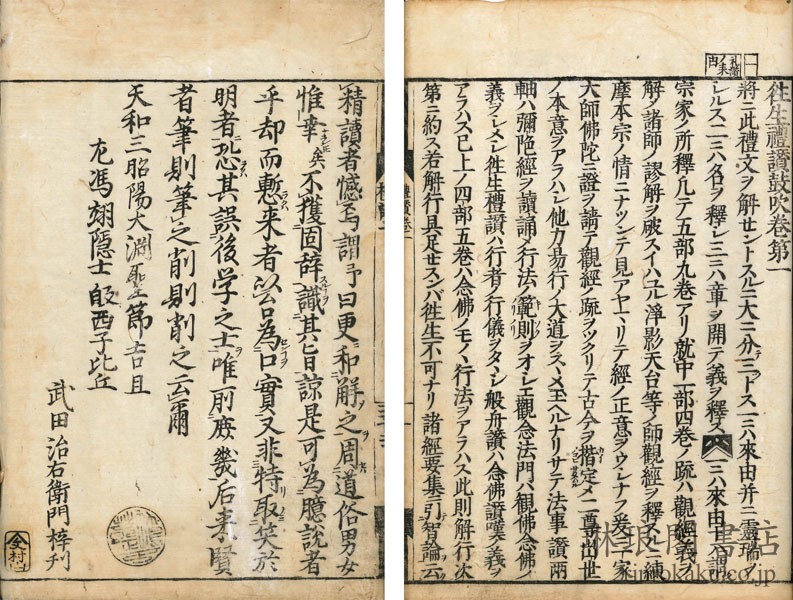 往生禮讚鼓吹卷第一
將ニ此禮文ヲ解セントスルニ大ニ分三トス一ハ來由并ニ靈瑞ヲ
シルス二ハ名ヲ釋シ三ハ章ヲ開テ義ヲ釋ス一ハ來由トハ謂
宗家ノ所釋凡テ五部九卷アリ就中一部四卷ノ疏ハ觀經ノ義ヲ
解メ諸師ノ謬解ヲ破スイハユル淨影天台等ノ師觀經ヲ釋スルニ練
摩本宗ノ情ニナツンテ見アヤマリテ經ノ正意ヲウシナフ爰ニ宗家
大師佛陀ニ證ヲ請テ觀經ノ疏ヲツクリテ古今ヲ楷定メ二尊出世
ノ本意ヲアラハシ他力易行ノ大道ヲスヽメ玉ヘルナリサテ法事讚兩
軸ハ彌陀經ヲ讀誦メ行法ノ範則ヲオシエ觀念法門ハ觀佛念佛ノ
義ヲシメシ往生禮讚ハ行者ノ行儀ヲタヽシ般舟讚ハ念佛讚嘆ノ義ヲ
アラハス已上ノ四部五卷ハ念佛ノモノヽ行法ヲアラハス此則解行次
第ニ約ス若解行具足セスンバ往生不可ナリ諸經要集ニ引智論云
精讀者憾焉謂予曰更和解之周道俗男女
惟幸矣不獲固辞識其旨諒是可為臆説者
乎却而慙来者以吾為口實又非特取笑於
明者恐其誤後学之士唯前庶幾后来賢
者筆則筆之削則削之云爾
天和三昭陽大淵聖節吉旦
左馮翊隠士 西子比丘
武田治右衛門梓刊